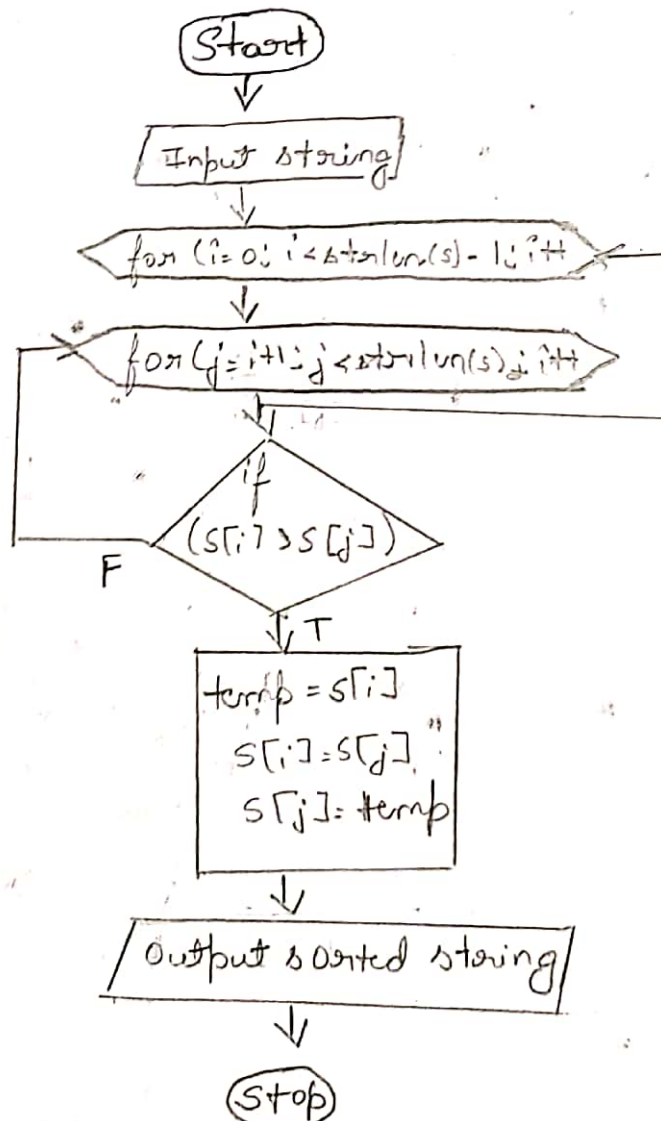 Start
Input string
for (i=0; i<strlen(s)-1; i++
for(j=i+1; j<strlen(s); i++
if
(s[i]>s[j])
F
T
temp = s[i]
s[i]=s[j]
s[j]= temp
Output sorted string
Stop